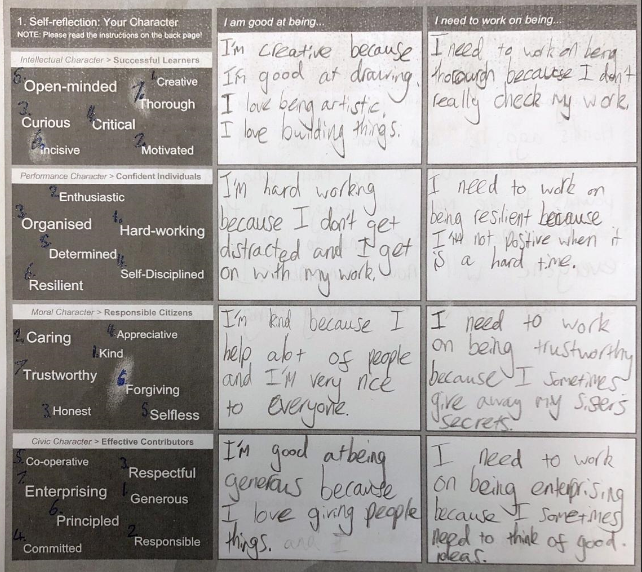 1. Self-reflection: Your Character
NOTE: Please read the instructions on the back page!
I am good at being...
I need to work on being...
Intellectual Character > Successful Learners
5. Open-minded
1. Creative
7. Thorough
3. Curious
4. Critical
6. Incisive
2. Motivated
I'm creative because
I'm good at drawing.
I love being artistic.
I love building things.
I need to work on being
thorough because I don't
really check my work.
Performance Character > Confident Individuals
2. Enthusiastic
3. Organised
1. Hard-working
5. Determined
Self-Disciplined
Resilient
I'm hard working
because I don't get
distracted and I get
on with my work.
I need to work on
being resilient because
I'm not postive when it
is a hard time.
Moral Character > Responsible Citizens
2. Caring
4. Appreciative
1. Kind
7. Trustworthy
6. Forgiving
3. Honest
5. Selfless
I'm kind because I
help alot of people
and I'M very nice
to everyone.
I need to work
on being trustworthy
because I sometimes
give away my siser's
secrets.
Civic Character > Effective Contributors
5. Co-operative
3. Respectful
7. Enterprising
1. Generous
6. Principled
4. Committed
2. Responsible
I'M good at being
generous because
I love giving people
things. and I
I need to work
on being enterprising
because I sometimes
need to think of good
ideas.